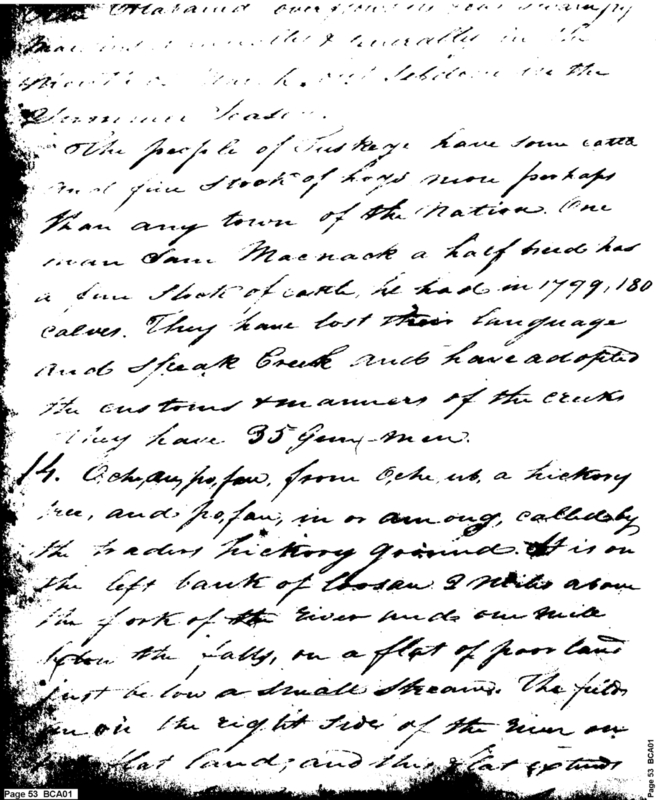 the Alabama overflows
in the
but seldom in the
Summer Season.
The people of Tuskege have some cattle
and fine stock of hogs more perhaps
than any town of the Nation. One
man Sam Macnack a half breed has
a fine stock of cattle, he had in 1799, 180
calves. They have lost their language
and speak Creek and have adopted
the customs & manners of the creeks
They have 35 Gun-men.
14. O,che,au,po,fau, from O,che,ub, a hickory
tree, and po,fau, in or among, called by
the traders hickory ground. It is on
the left bank of Coosau 2 Miles above
the fork of the River and one mile
below the falls, on a flat of poor land
just below a small stream. The fields
are on the right side of the River on
flat land; and this flat extends
Page 53 BCA01
Page 53 BCA01